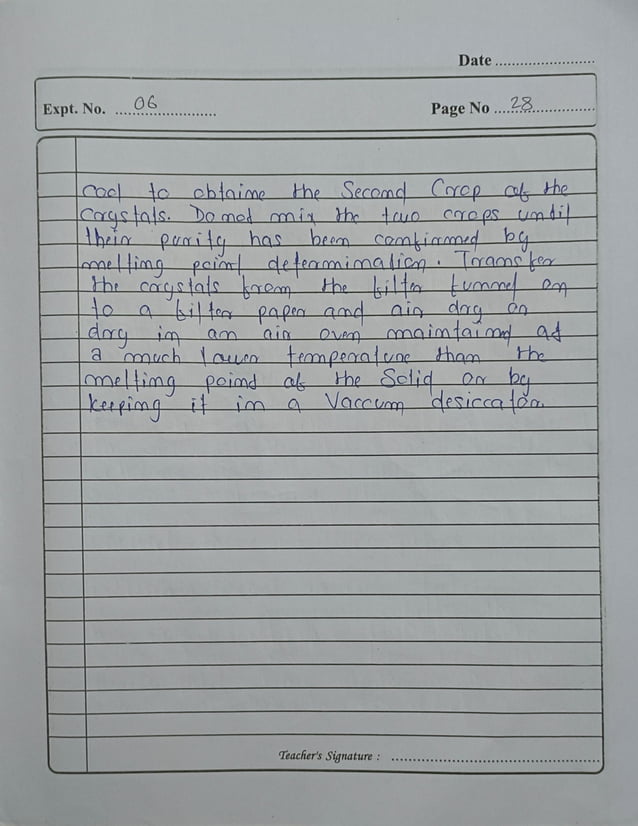 Date
Expt. No. 06 Page No 28
cool to obtaime the Second Crop of the
crystals. Do not mix the two crops until
their purity has been confirmed by
melting point determination. Transfer
the crystals from the filter funnel on
to a filter paper and air dry or
dry in an air oven maintained at
a much lower temperature than the
melting point of the Solid or by
keeping it in a Vaccum desiccator
Teacher's Signature :